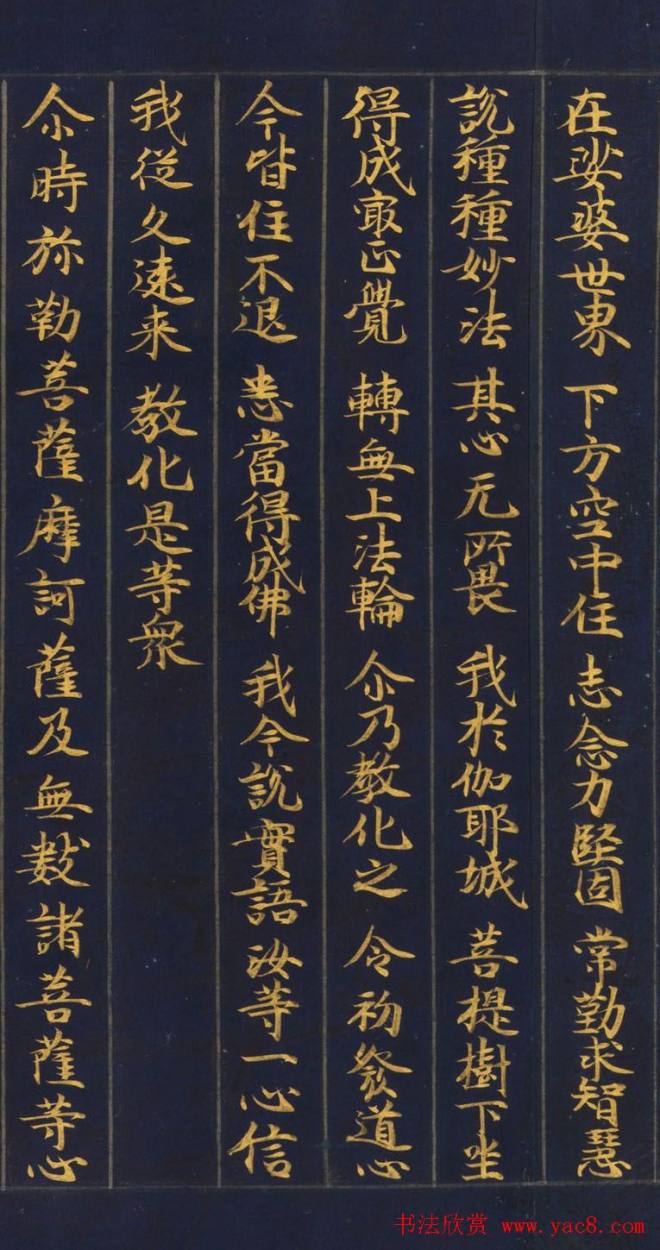 在娑婆世界 下方空中住 志念力堅固 常勤求智慧
說種種妙法 其心无所畏 我於伽耶城 菩提樹下坐
得成㝡正覺 轉無上法輪 尒乃教化之 令初發道心
今皆住不退 悉當得成佛 我今說實語 汝等一心信
我從久遠来 教化是等衆
尒時弥勒菩薩摩訶薩及無數諸菩薩等心
书法欣赏 www.yac8.com